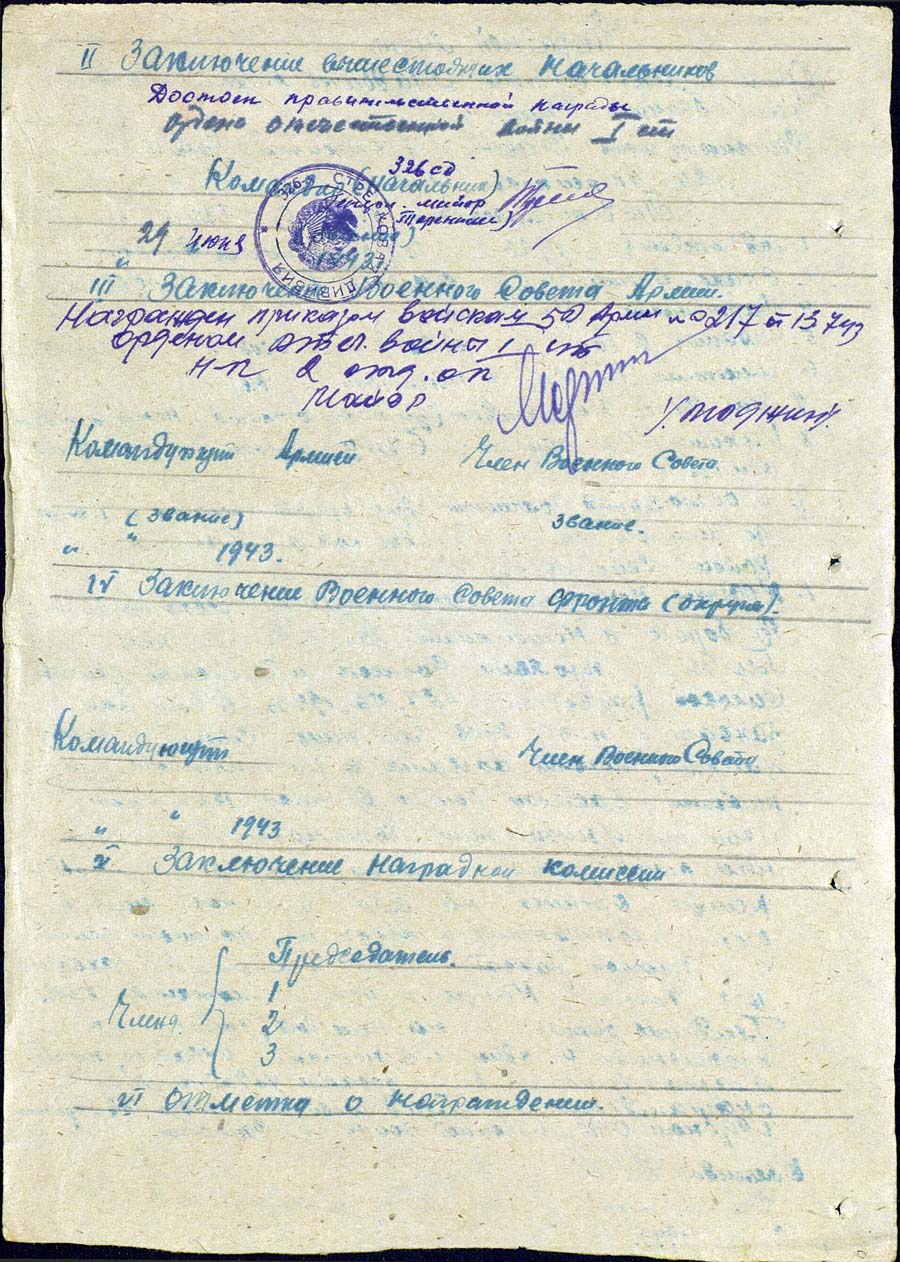 II Заключение вышестоящих начальников
Достоин правительственной награды
ордена отечественной войны I ст
Командир (начальник) 326 сд
генерал-майор
(Терентьев)
326 СТРЕЛКОВАЯ ДИВИЗИЯ
29 июня 1943
III Заключение Военного Совета Армии.
Награжден приказом войскам 50 Армии № 217 от 13.7.43
орденом отеч. войны I ст
н-к 2 отд. ок
Майор
Командующий Армией Член Военного Совета
(звание) звание.
" " 1943.
IV Заключение Военного Совета фронта (округа).
Командующий Член Военного Совета
" " 1943
V Заключение наградной комиссии
Председатель.
Члены.
1
2
3
VI Отметка о награждении.